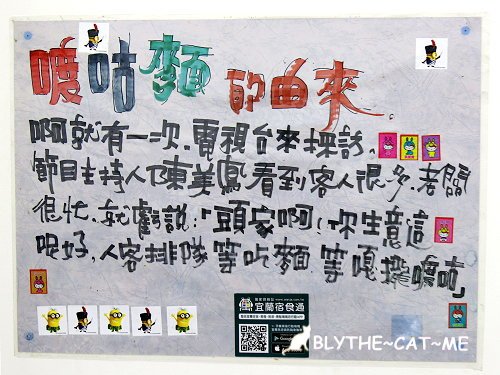 嚘咕麵 的由來
啊就有一次，電視台來採訪，
節目主持人「陳美鳳」看到客人很多，老闆
很忙，就虧說：「頭家啊！你生意這
呢好，人客排隊等吃麵 等嘎攏嚘咕」
宜蘭宿食通
BLYTHE~CAT~ME